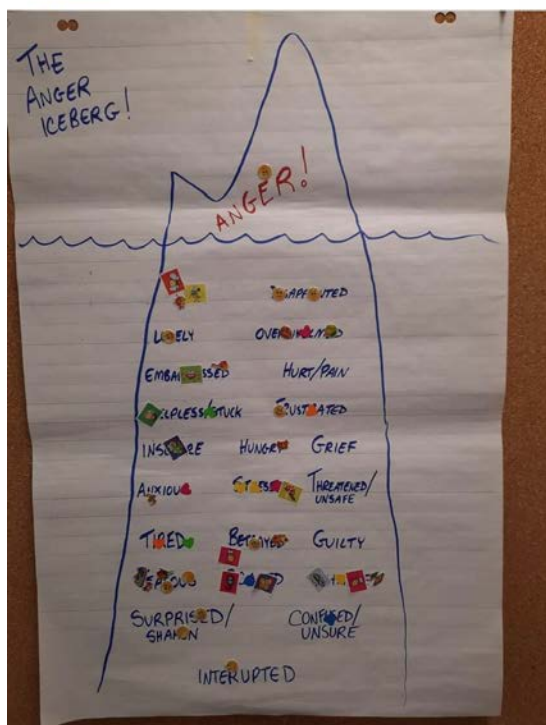 THE
ANGER
ICEBERG!
ANGER!
DISAPPOINTED
LONELY OVERWHELMED
EMBARRASSED HURT/PAIN
HELPLESS/STUCK FRUSTRATED
INSECURE HUNGRY GRIEF
ANXIOUS STRESS THREATENED/
UNSAFE
TIRED BETRAYED GUILTY
JEALOUS
SURPRISED/ CONFUSED/
SHAKEN UNSURE
INTERUPTED